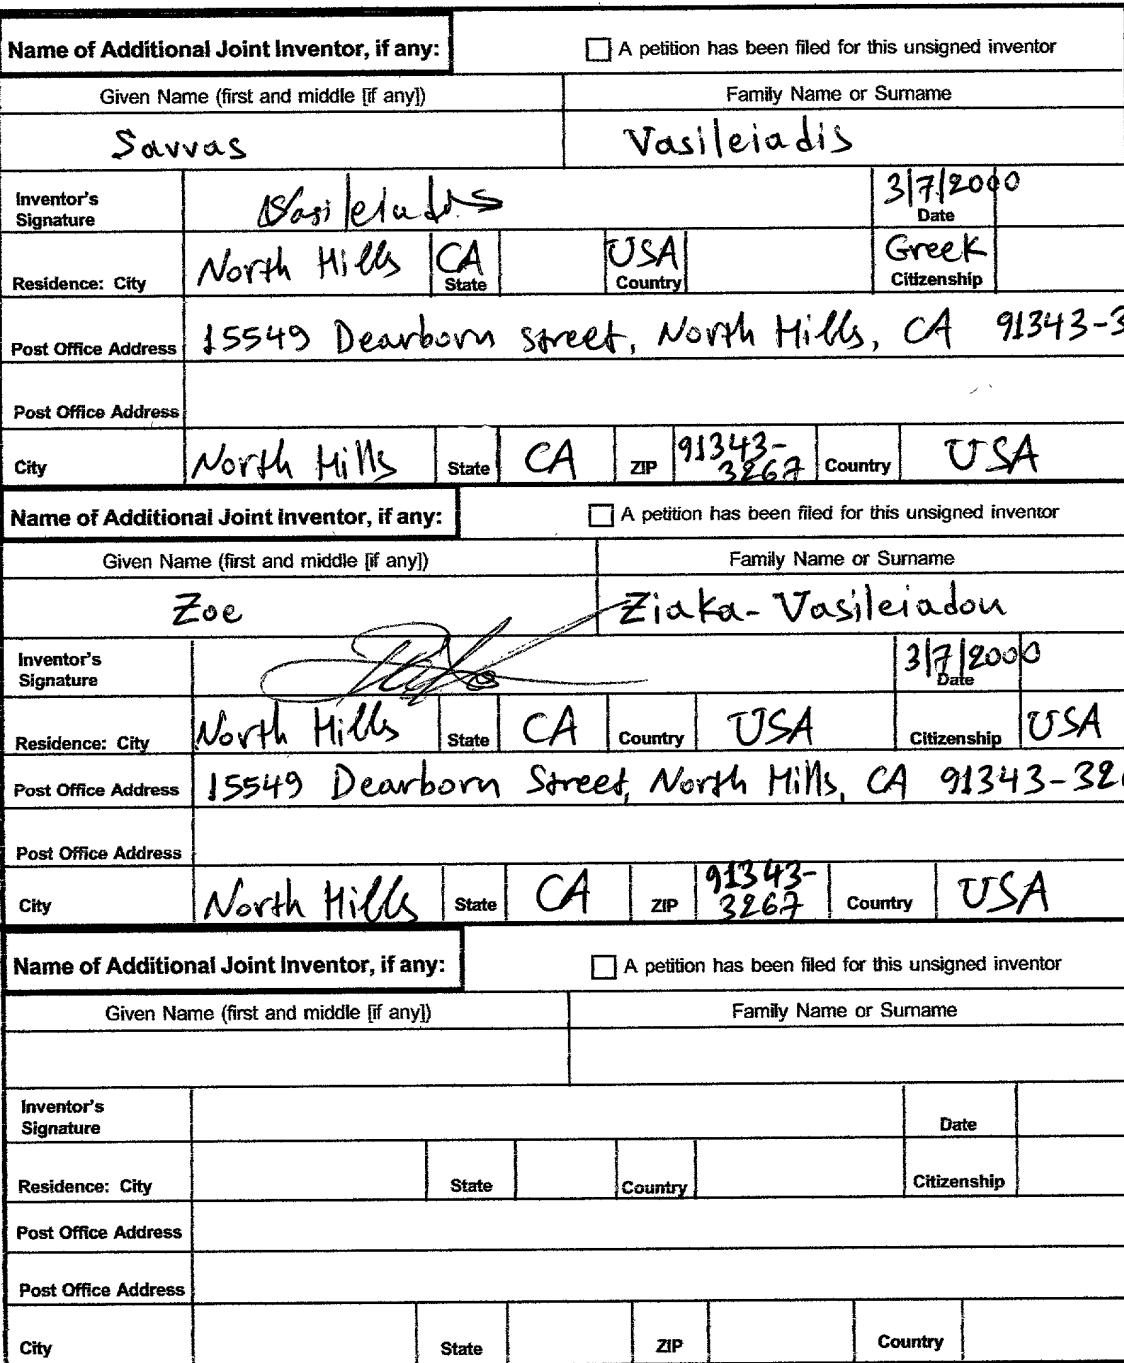 Name of Additional Joint Inventor, if any: A petition has been filed for this unsigned inventor
Given Name (first and middle [if any]) Family Name or Surname
Savvas Vasileiadis
Inventor's Signature Vasileiadis 3/7/2000 Date
Residence: City North Hills CA State USA Country Greek Citizenship
Post Office Address 15549 Dearborn street, North Hills, CA 91343-3
Post Office Address
City North Hills State CA ZIP 91343-3267 Country USA
Name of Additional Joint Inventor, if any: A petition has been filed for this unsigned inventor
Given Name (first and middle [if any]) Family Name or Surname
Zoe Ziaka-Vasileiadou
Inventor's Signature 3/7/2000 Date
Residence: City North Hills State CA Country USA Citizenship USA
Post Office Address 15549 Dearborn Street, North Hills, CA 91343-326
Post Office Address
City North Hills State CA ZIP 91343-3267 Country USA
Name of Additional Joint Inventor, if any: A petition has been filed for this unsigned inventor
Given Name (first and middle [if any]) Family Name or Surname
Inventor's Signature Date
Residence: City State Country Citizenship
Post Office Address
Post Office Address
City State ZIP Country